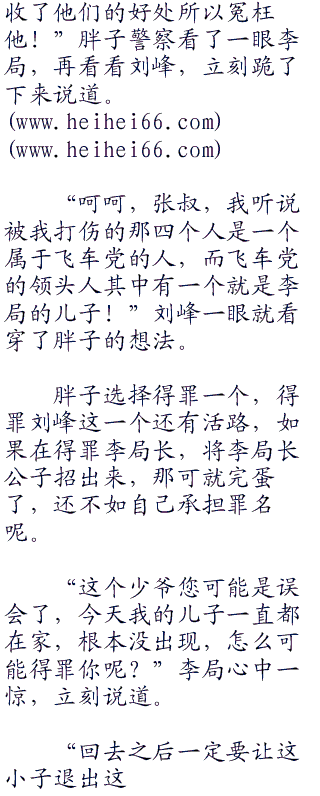 收了他们的好处所以冤枉
他！”胖子警察看了一眼李
局，再看看刘峰，立刻跪了
下来说道。
(www.heihei66.com)
(www.heihei66.com)
“呵呵，张叔，我听说
被我打伤的那四个人是一个
属于飞车党的人，而飞车党
的领头人其中有一个就是李
局的儿子！”刘峰一眼就看
穿了胖子的想法。
胖子选择得罪一个，得
罪刘峰这一个还有活路，如
果在得罪李局长，将李局长
公子招出来，那可就完蛋
了，还不如自己承担罪名
呢。
“这个少爷您可能是误
会了，今天我的儿子一直都
在家，根本没出现，怎么可
能得罪你呢？”李局心中一
惊，立刻说道。
“回去之后一定要让这
小子退出这